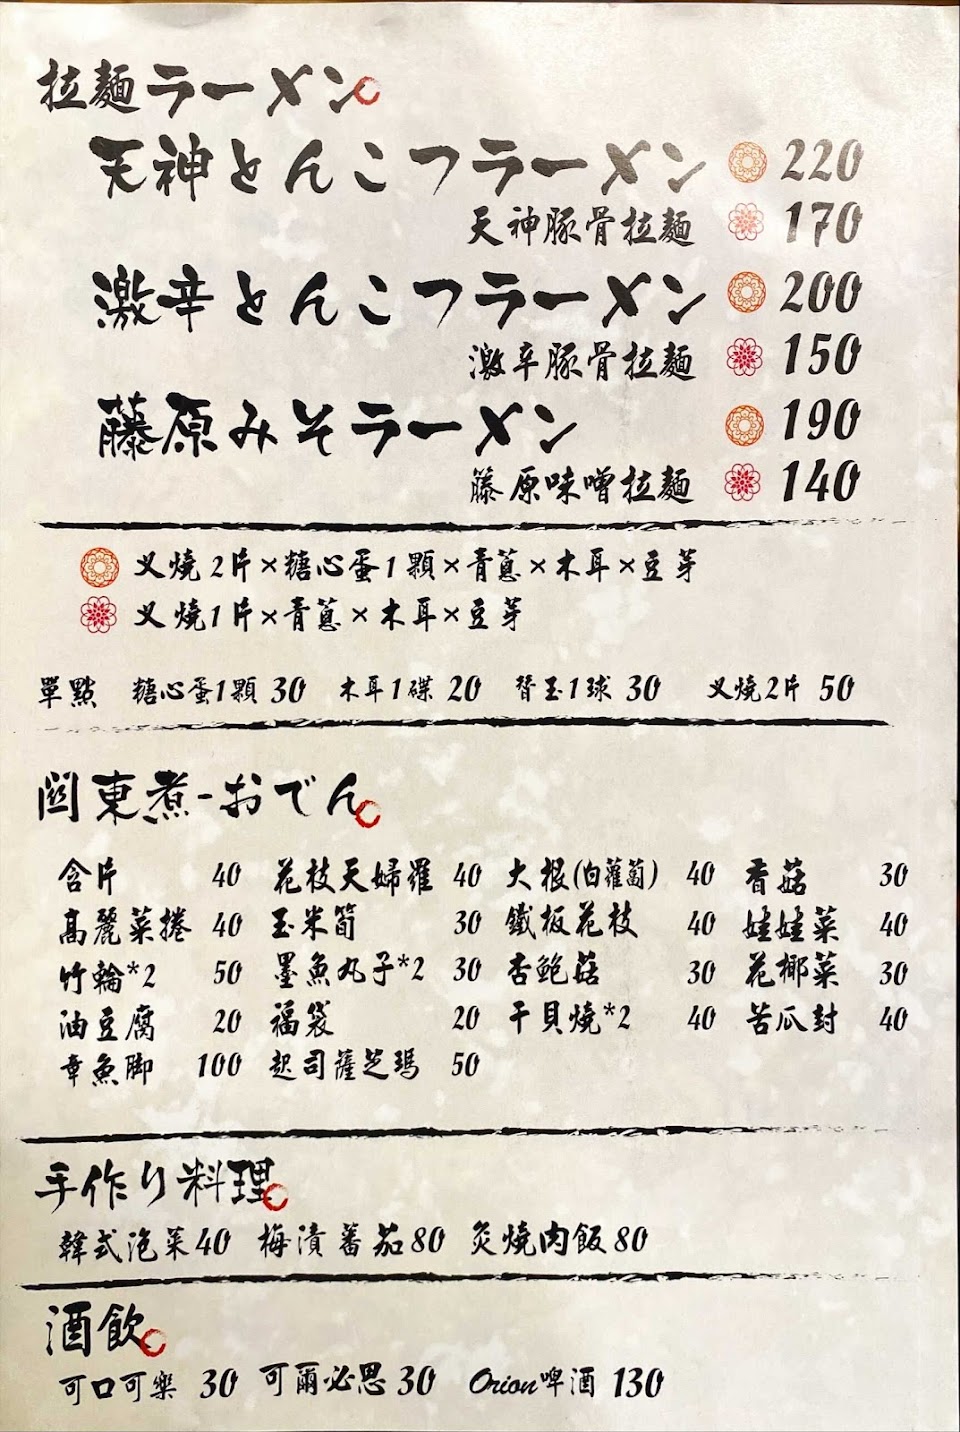 拉麵ラーメン
天神とんこつラーメン 220
天神豚骨拉麵 170
激辛とんこつラーメン 200
激辛豚骨拉麵 150
藤原みそラーメン 190
籐原味噌拉麵 140
叉燒2片×糖心蛋1顆×青蔥×木耳×豆芽
叉燒1片×青蔥×木耳×豆芽
單點 糖心蛋1顆 30 木耳1碟 20 替玉1球 30 叉燒2片 50
関東煮-おでん
含片 40 花枝天婦羅 40 大根(白蘿蔔) 40 香菇 30
高麗菜捲 40 玉米筍 30 鐵板花枝 40 娃娃菜 40
竹輪*2 50 墨魚丸子*2 30 杏鮑菇 30 花椰菜 30
油豆腐 20 福袋 20 干貝燒*2 40 苦瓜封 40
章魚脚 100 起司薩芝瑪 50
手作り料理
韓式泡菜40 梅漬蕃茄80 炙燒肉飯80
酒飲
可口可樂 30 可爾必思 30 Orion啤酒 130